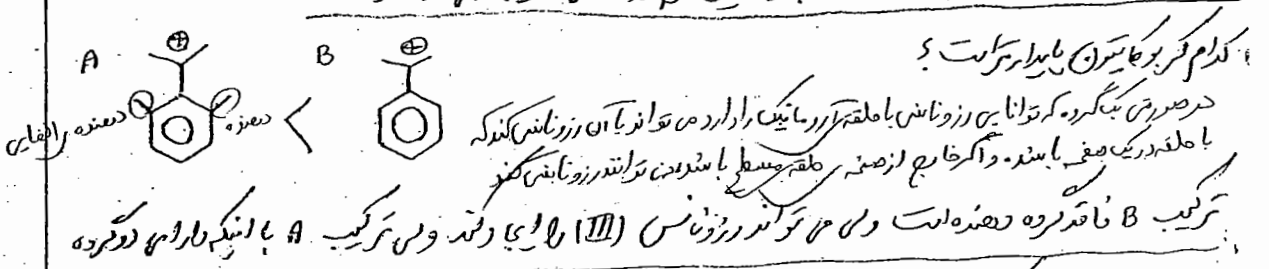 کدام کربوکاتیون پایدارتر است ؟
A ⊕ B ⊕
دهنده ی القایی دهنده <
در صورتی یک گروه که توانایی رزونانس با حلقه آروماتیک را دارد می تواند با آن رزونانس کند که
با حلقه در یک صفحه باشد. و اگر خارج از صفحه ی حلقه ی مسطح باشد، نمی توانند رزونانس کنند
ترکیب B فاقد گروه دهنده است ولی می تواند رزونانس (III) را ایجاد کند ولی ترکیب A با اینکه دارای دو گروه